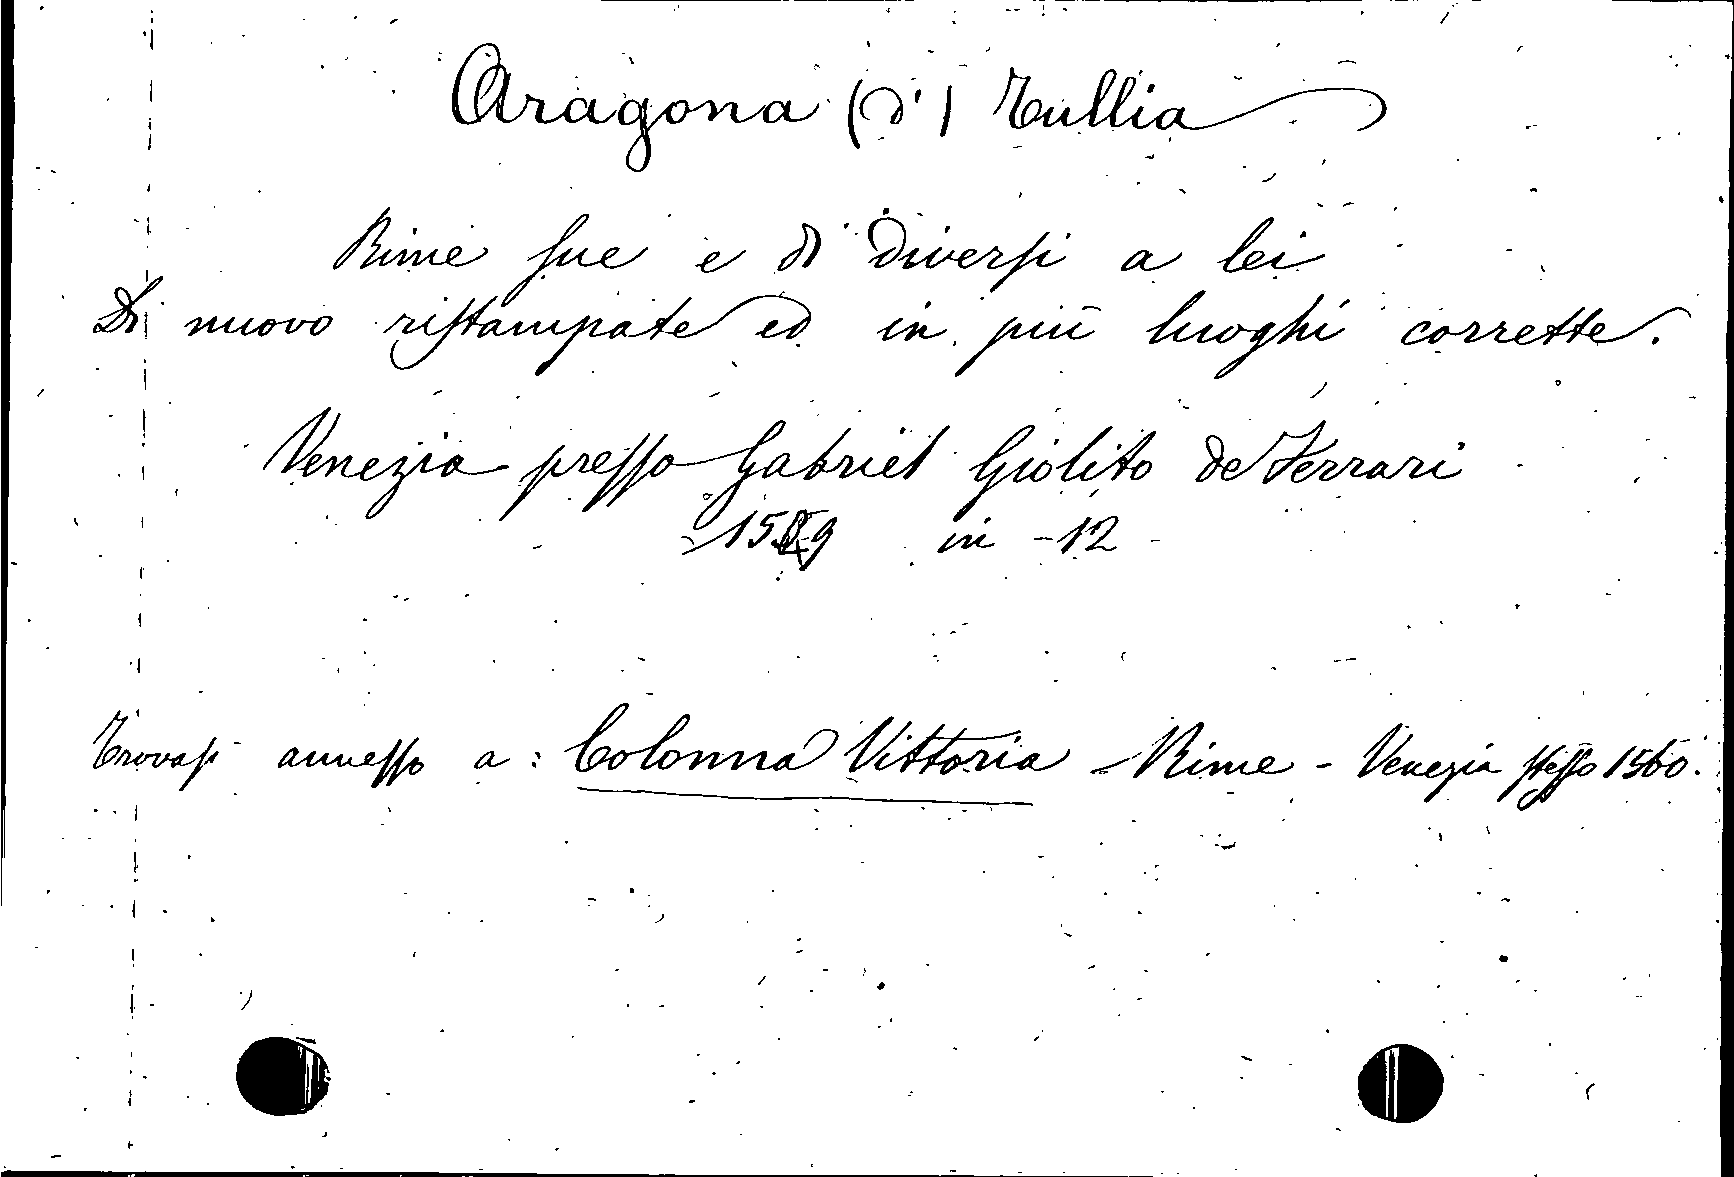 Aragona (d') Tullia
Rime sue e di diversi a lei
Di nuovo ristampate ed in più luoghi corrette.
Venezia presso Gabriel Giolito de Ferrari
in -12
Trovasi annesso a: Colonna Vittoria - Rime - Venezia stesso 1560.